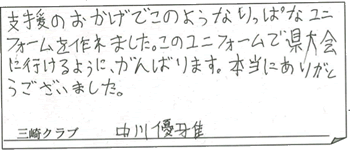 支援のおかげでこのようなりっぱなユニ
フォームを作れました。このユニフォームで県大会
に行けるように、がんばります。本当にありがと
うございました。
三崎クラブ 中川優雅